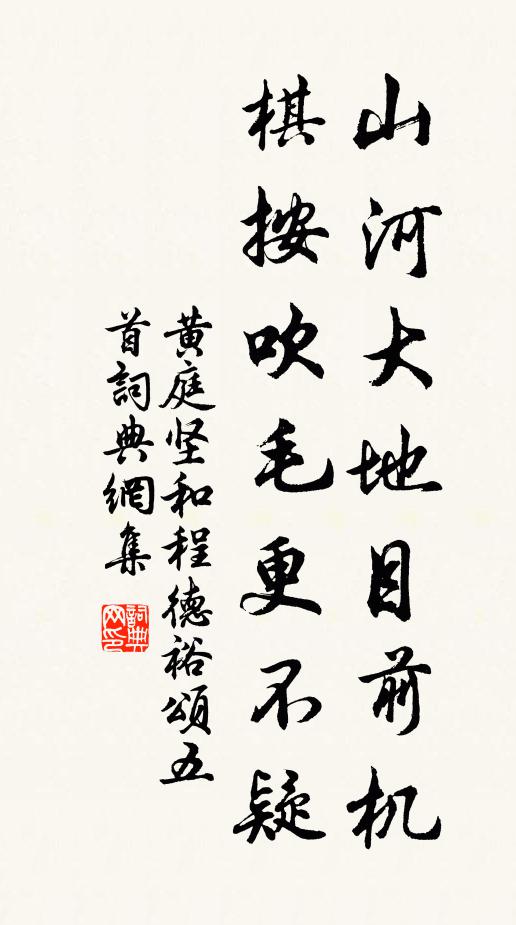 山河大地目前机
棋按吹毛更不疑
黄庭坚和程德裕頌五
首詞典網集
詞典网印